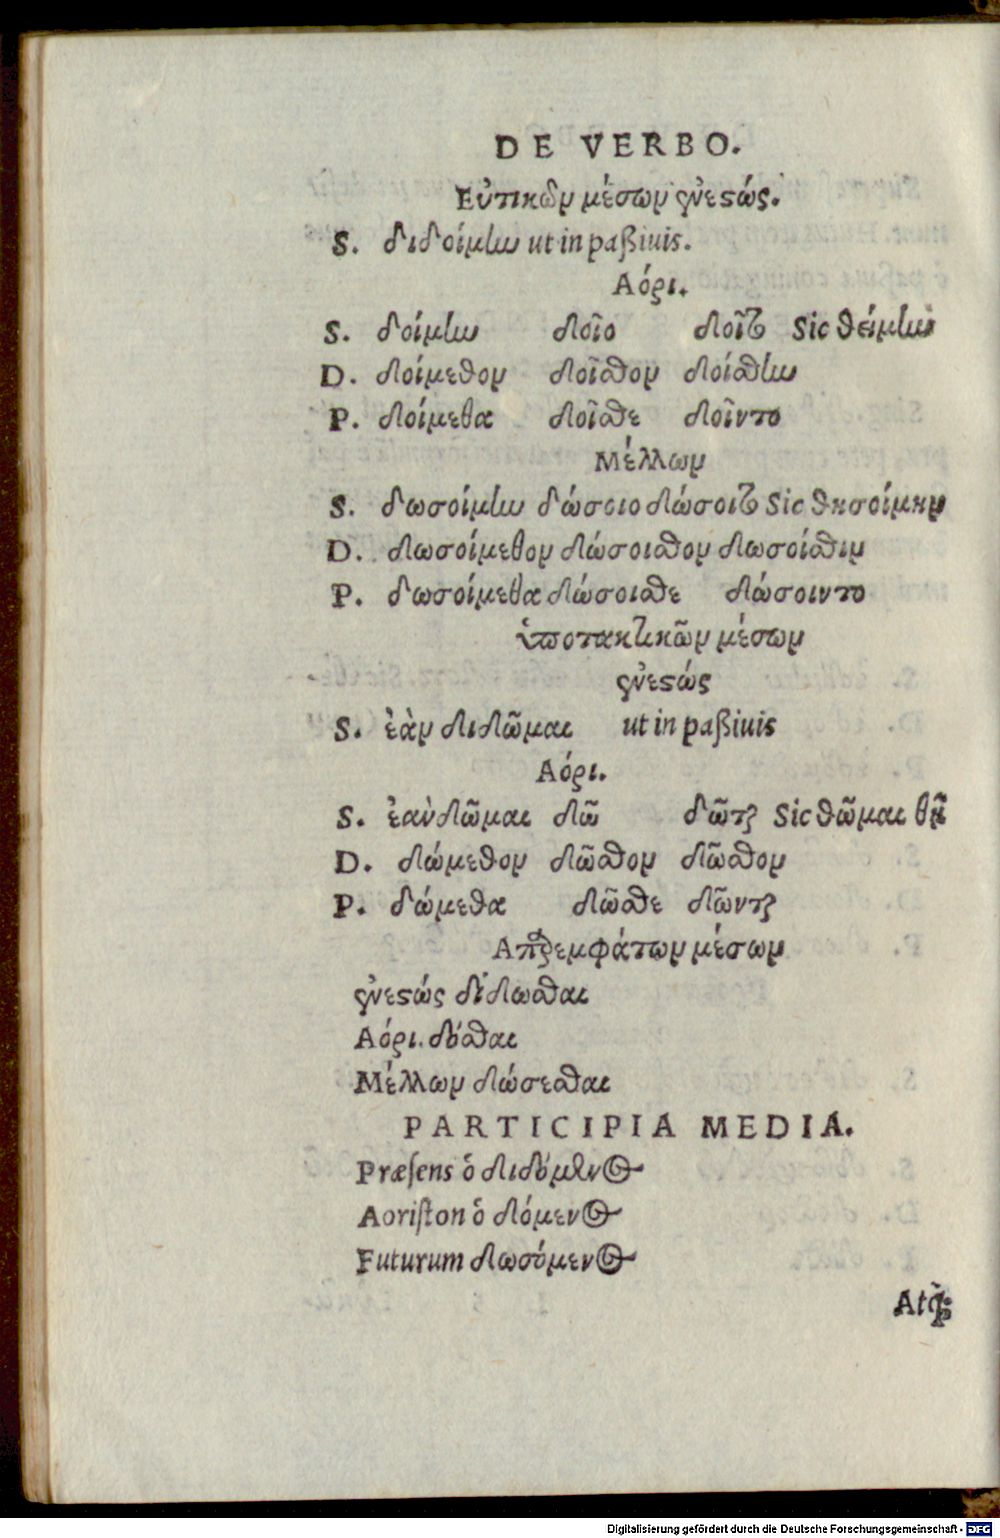 DE VERBO.
Εὐτικῶν μέσων ἐνεςώς.
S. διδοίμην ut in paßiuis.
Αόρι.
S. δοίμην δοῖο δοῖτο Sic θείμην
D. δοίμεθον δοῖσθον δοίσθην
P. δοίμεθα δοῖσθε δοῖντο
Μέλλων
S. δωσοίμην δώσοιο δώσοιτο Sic θησοίμην
D. δωσοίμεθον δώσοισθον δωσοίσθιν
P. δωσοίμεθα δώσοισθε δώσοιντο
ὑποτακτικῶν μέσων
ἐνεςώς
S. ἐὰν διδῶμαι ut in paßiuis
Αόρι.
S. ἐαὺ δῶμαι δῶ δῶται Sic θῶμαι θῆ
D. δώμεθον δῶσθον δῶσθον
P. δώμεθα δῶσθε δῶνται
Απαρεμφάτων μέσων
ἐνεςώς δίδωσθαι
Αόρι. δόσθαι
Μέλλων δώσεσθαι
PARTICIPIA MEDIA.
Præſens ὁ διδόμενος
Aoriſton ὁ δόμενος
Futurum δωσόμενος
Atq;